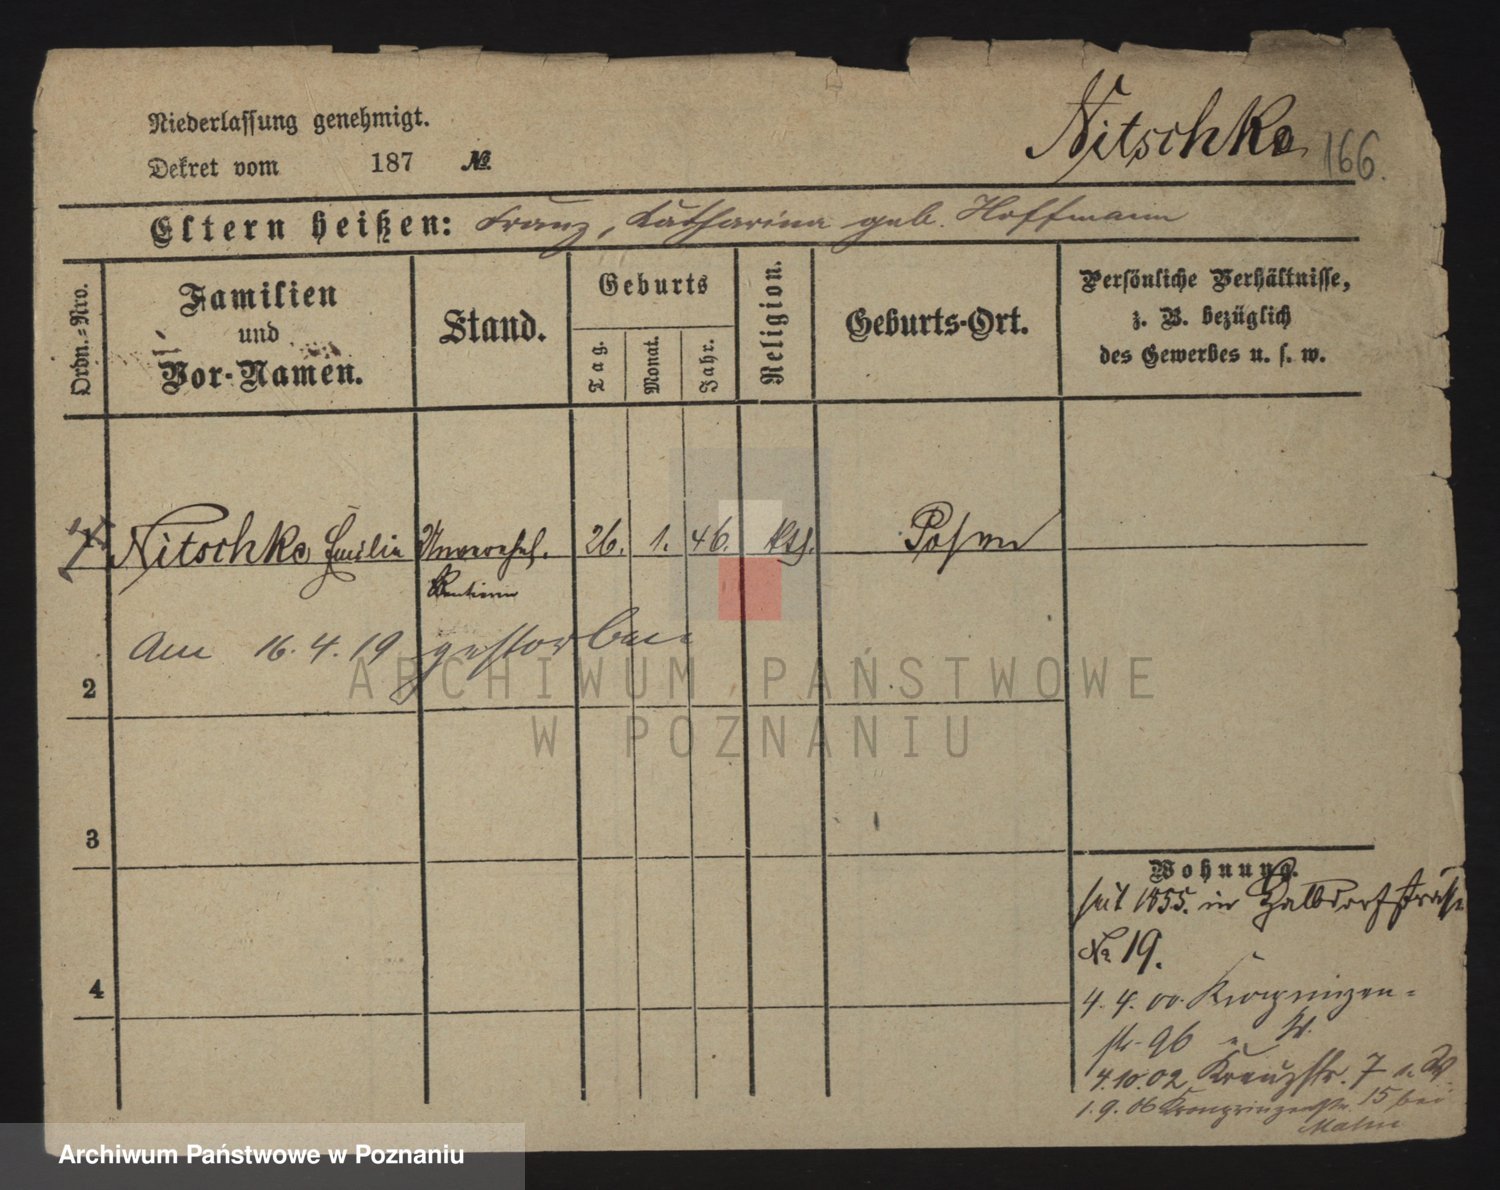 Niederlassung genehmigt.
Dekret vom 187 №
Nitschke 166.
Eltern heißen: Franz, Katharina geb. Hoffmann
Ordn.-Nro.
Familien
und
Vor-Namen.
Stand.
Geburts
Tag.
Monat.
Jahr.
Religion.
Geburts-Ort.
Persönliche Verhältnisse,
z. B. bezüglich
des Gewerbes u. s. w.
1 Nitschke Emilie Unverehel. 26. 1. 46. kth. Posen
Rentierin
Am 16.4.19 gestorben
2
3
4
ARCHIWUM PAŃSTWOWE
W POZNANIU
Wohnung.
seit 1855. in Halbdorfstraße
No 19.
4.4.00. Kronprinzen-
str. 96 u. W.
4.10.02 Kreuzstr. 7 u. W
1.9.06 Kronprinzenstr. 15 bei
Archiwum Państwowe w Poznaniu